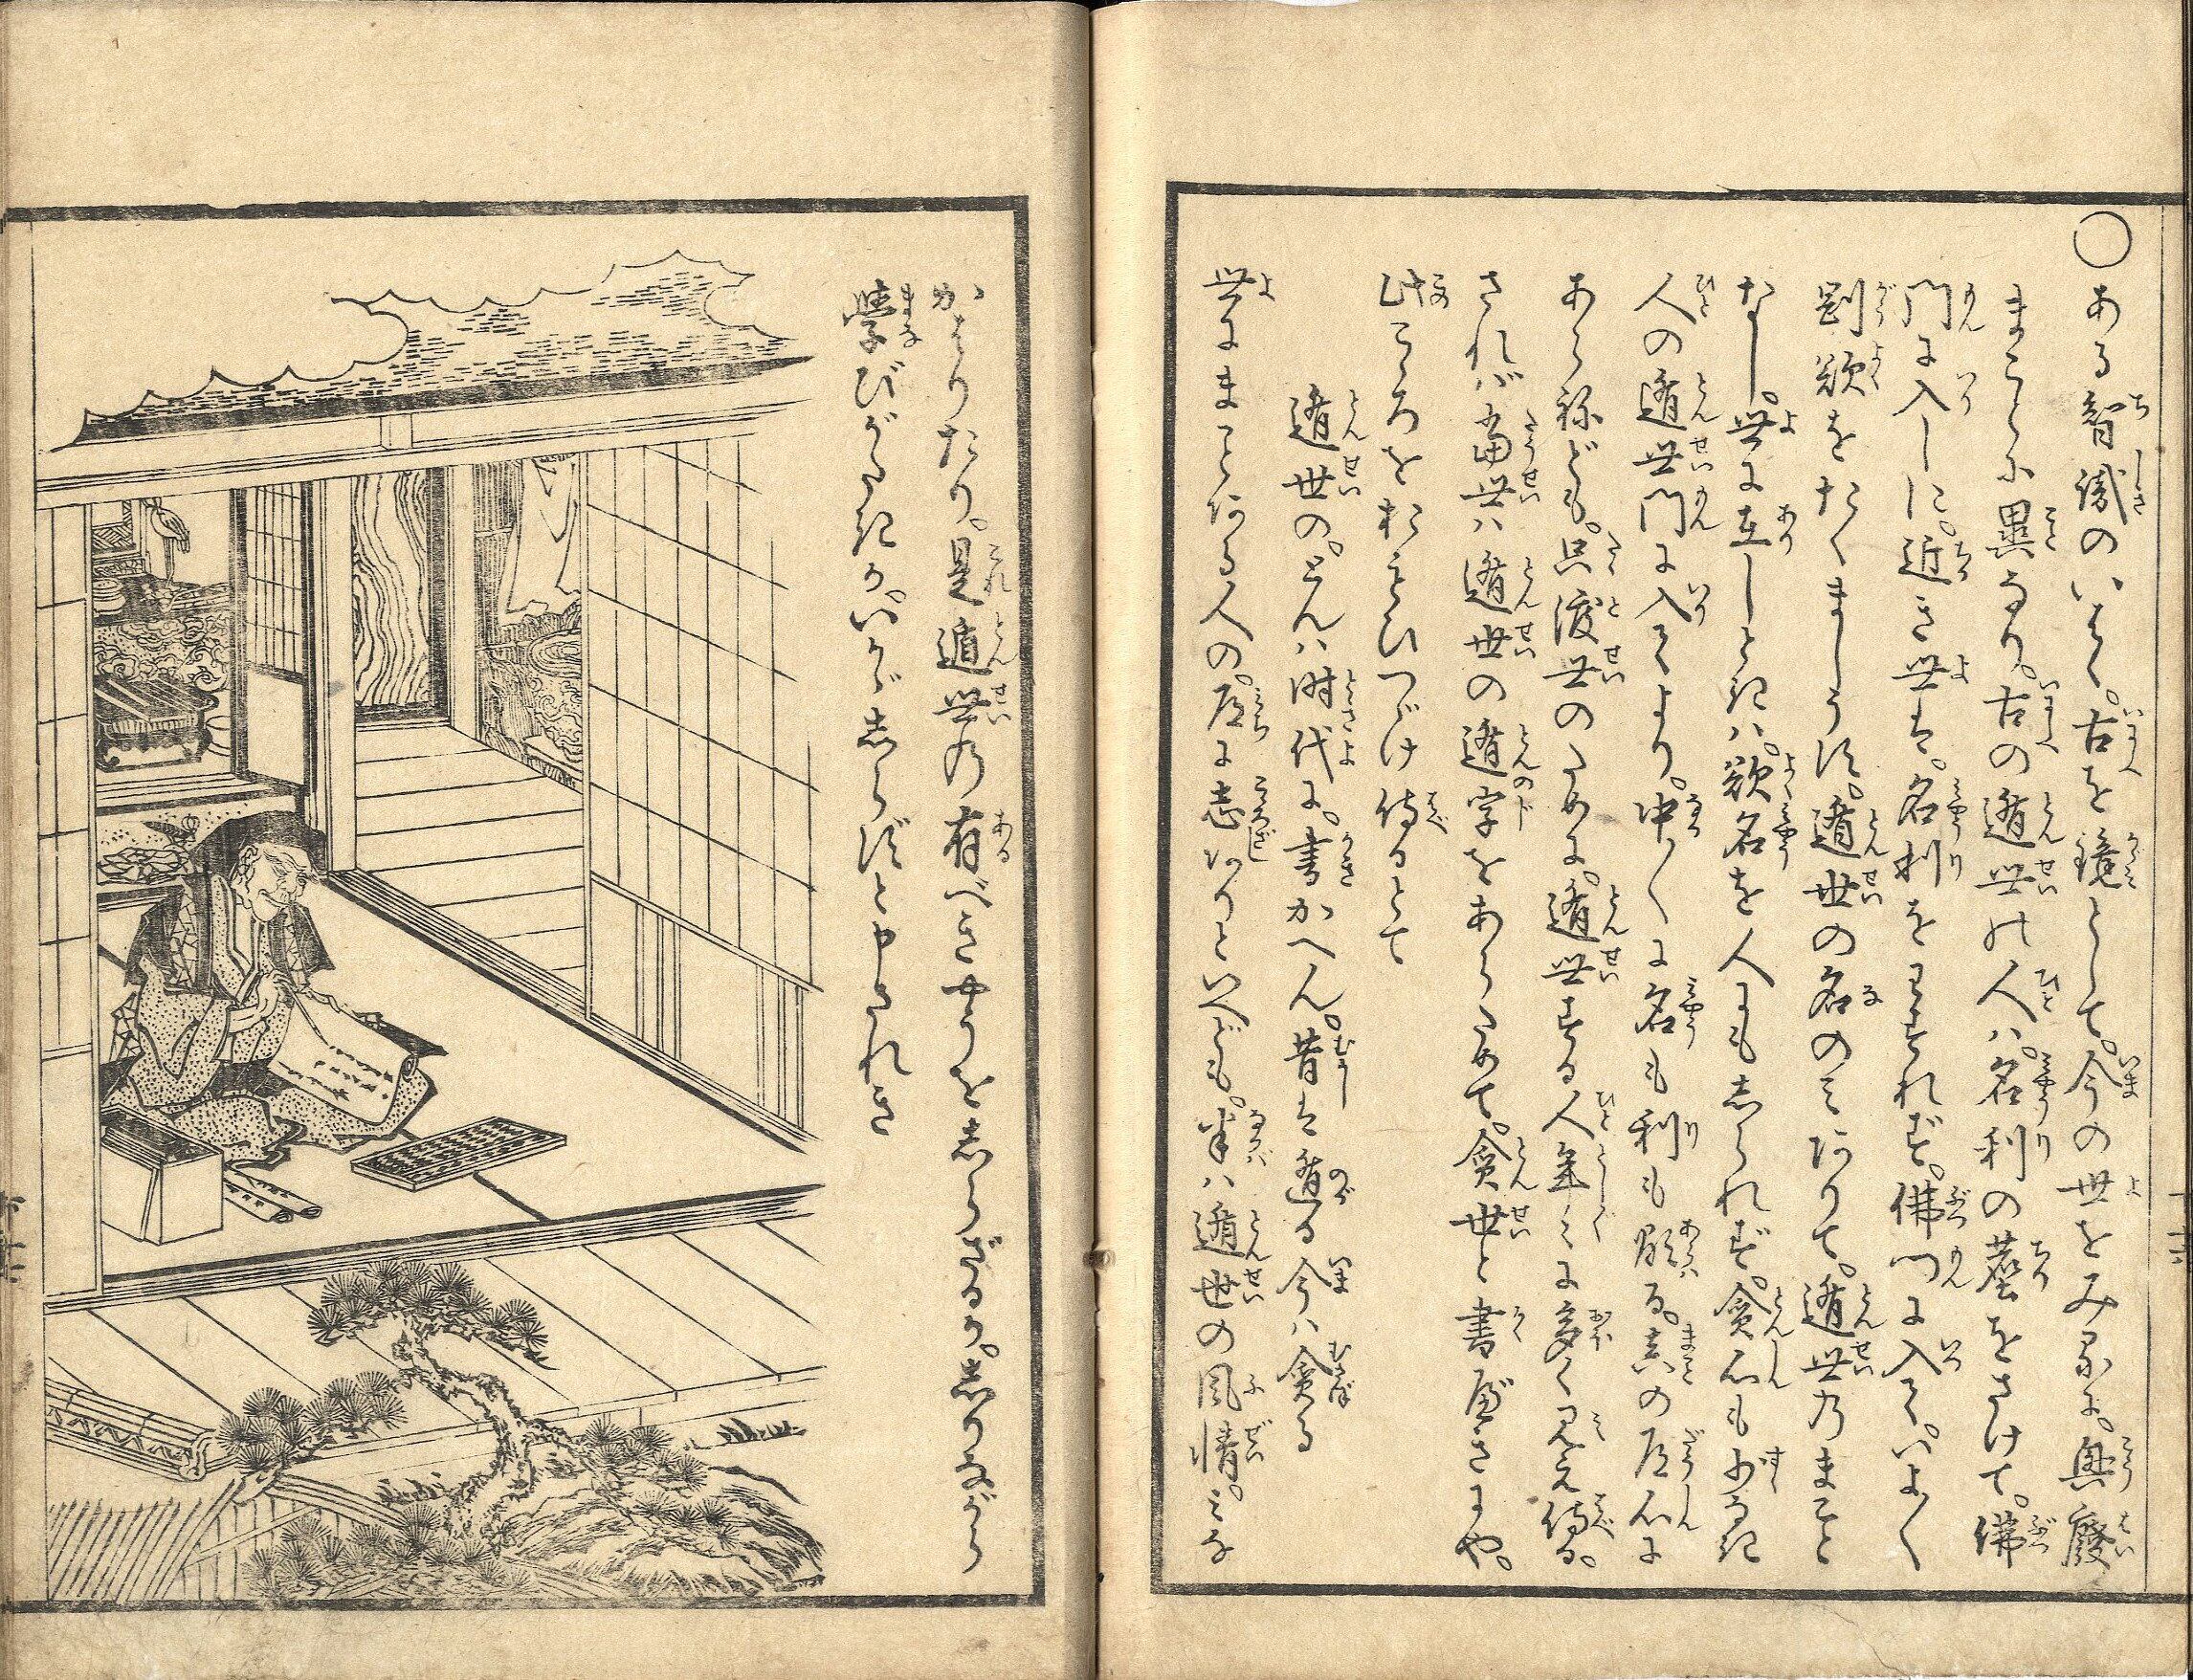 ○ある智識のいはく。古を鏡として。今の世をみるに。興廢
まことに異なり。古の遁世の人は。名利の塵をさけて。佛
門に入しに。近き世は。名利をわすれず。佛門に入て。いよ〱
剛欲をたくましうす。遁世の名のみありて。遁世のまこと
なし。世に在しときは。欲名を人にもしられず。貪心も少なき
人の遁世門に入てより。中〱に名も利も顕る。真の道心に
あらねども。只渡世のために。遁世する人年〻に多く見え侍る。
されば當世は遁世の遁字をあらためて。貪世と書べきにや。
此こゝろをおもひつゞけ侍るとて
遁世の。とんは時代に。書かへん。昔は遁る今は貪る
世にまことある人の。道に志ありといへども。半は遁世の風情。みな
かはりたり。是遁世の有べきやうをしらざるか。しりながら
學びがたきか。いかゞしらずと申されき